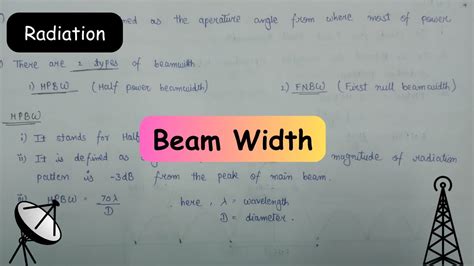 Radiation
ned as the aperature angle from where most of power
There are 2 types of beamwidth
i) HPBW (Half power beamwidth)
2) FNBW (First null beamwidth)
HPBW
i) It stands for Half
Beam Width
ii) It is defined as magnitude of radiation
pattern is -3dB from the peak of main beam.
iii) HPBW = 70λ/D
here, λ = wavelength
D = diameter.